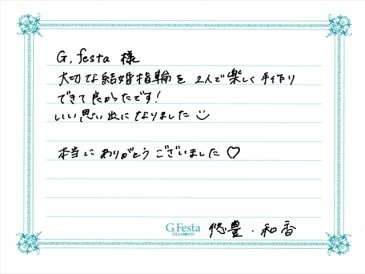 G.festa 様
大切な結婚指輪を 2人で楽しく手作り
できて良かったです!
いい思い出になりました
本当にありがとうございました♡
G.Festa
DIAMOND
悠豊・和香